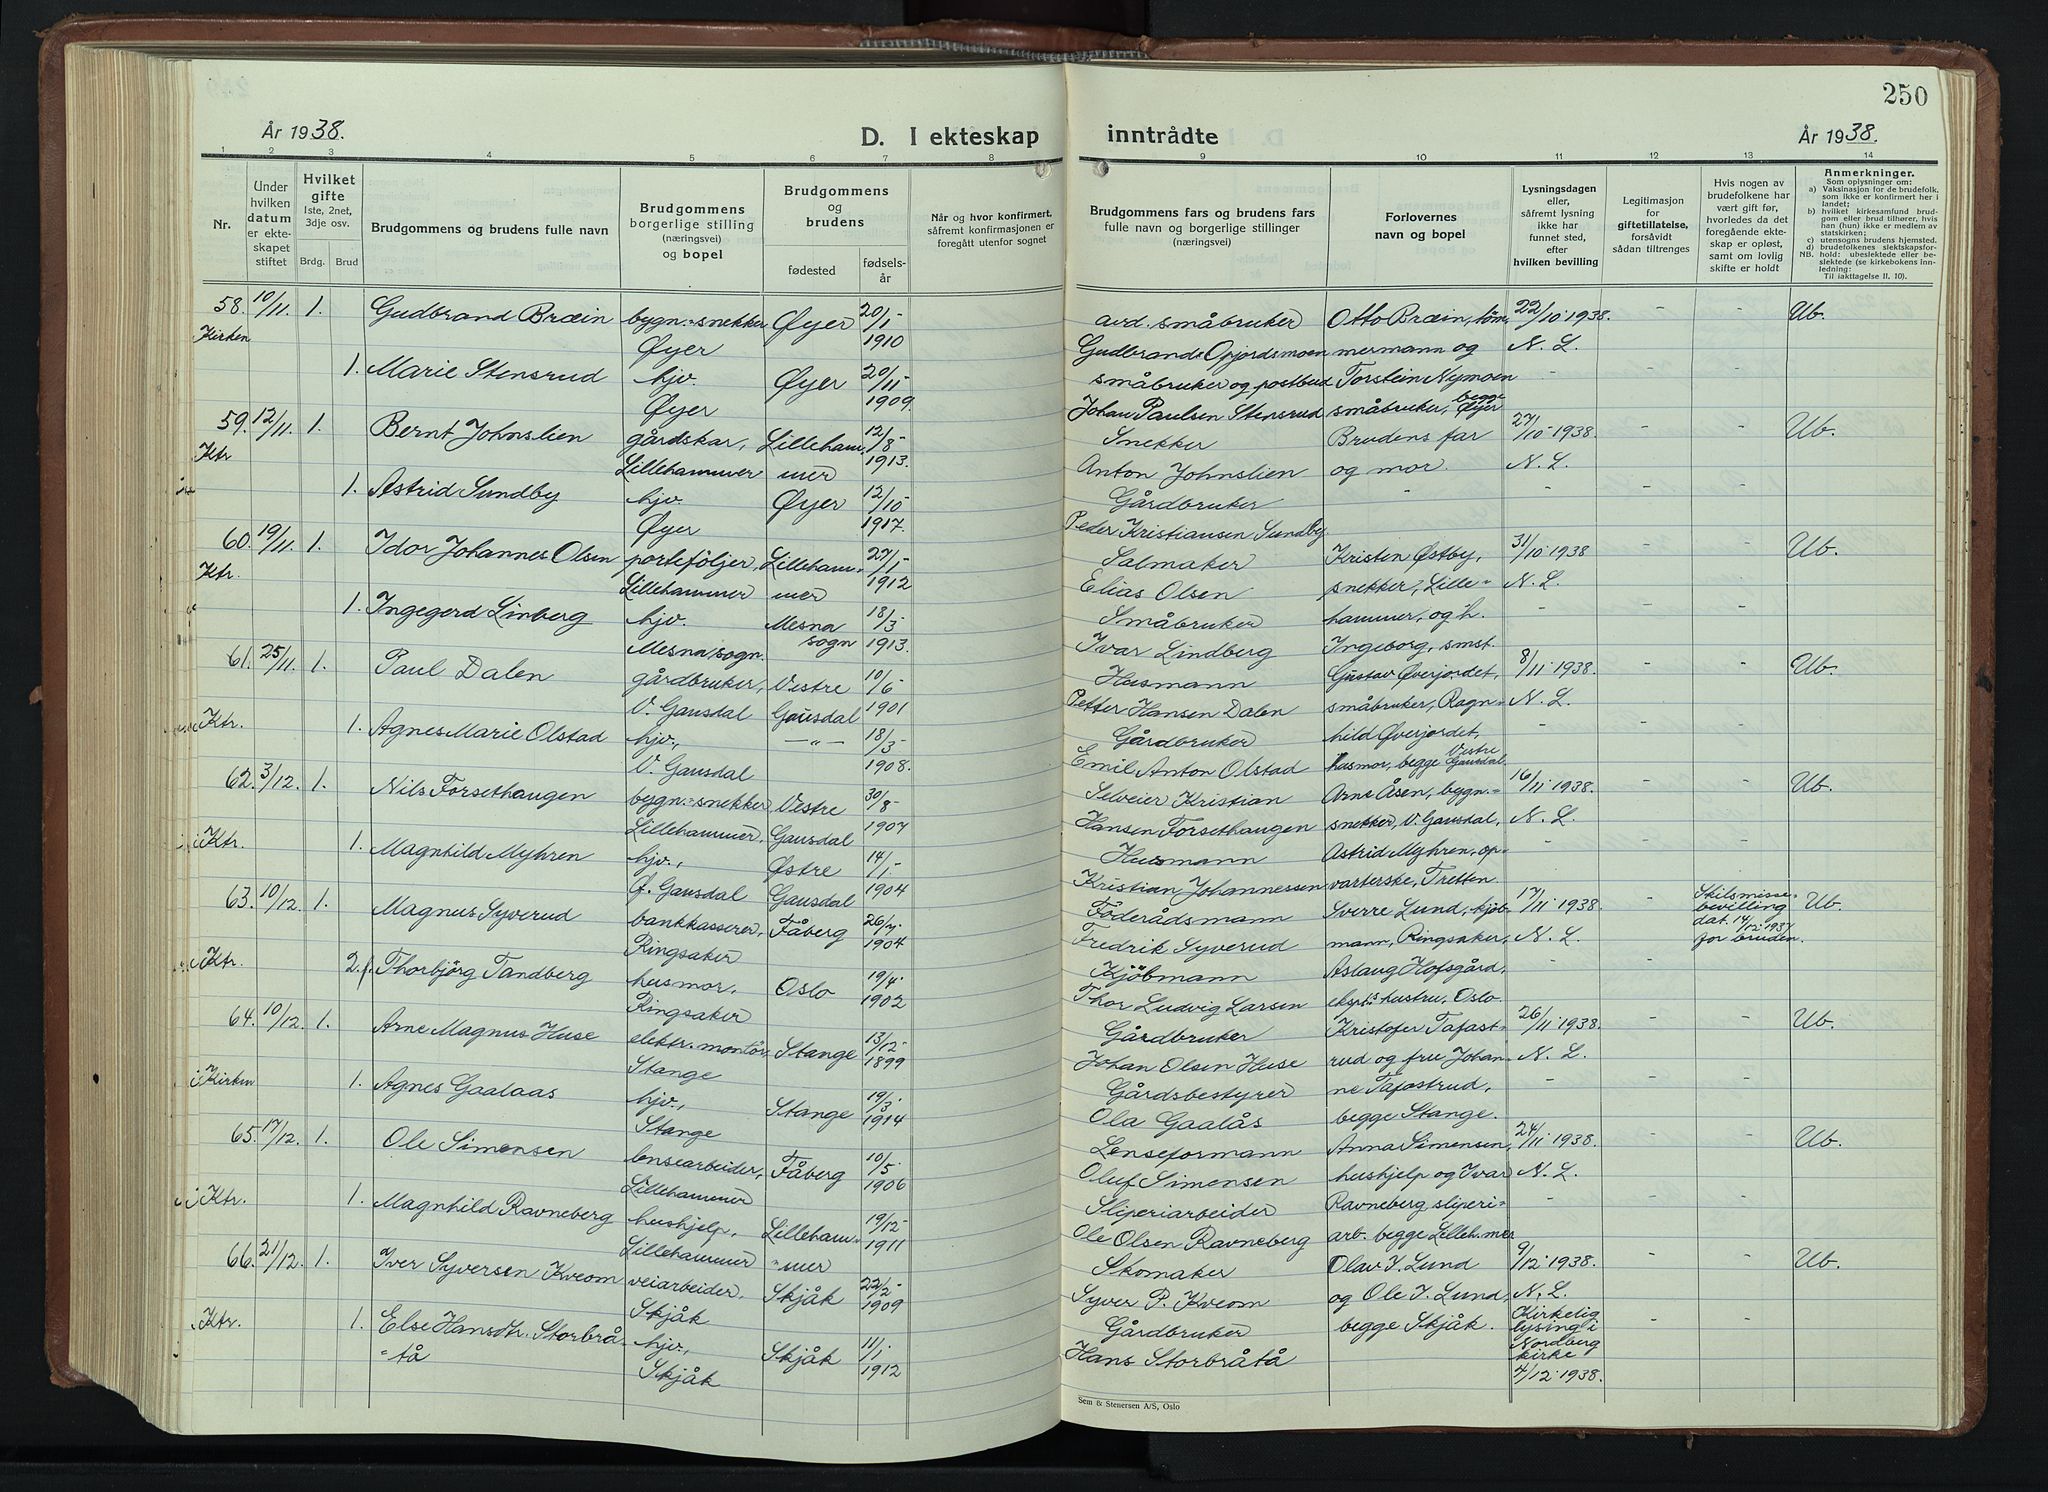 År 1938.
D. I ekteskap
inntrådte
År 1938.
250
1 2 3 4 5 6 7 8 9 10 11 12 13 14
Nr.
Under hvilken datum er ekteskapet stiftet
Hvilket gifte
1ste, 2net, 3dje osv.
Brdg. Brud
Brudgommens og brudens fulle navn
Brudgommens borgerlige stilling (næringsvei) og bopel
Brudgommens og brudens
fødested
fødselsår
Når og hvor konfirmert, såfremt konfirmasjonen er foregått utenfor sognet
Brudgommens fars og brudens fars fulle navn og borgerlige stillinger (næringsvei)
Forlovernes navn og bopel
Lysningsdagen eller, såfremt lysning ikke har funnet sted, efter hvilken bevilling
Legitimasjon for giftetillatelse, forsåvidt sådan tiltrenges
Hvis nogen av brudefolkene har vært gift før, hvorledes da det foregående ekteskap er opløst, samt om lovlig skifte er holdt
Anmerkninger.
Som oplysninger om:
a) Vaksinasjon for de brudefolk, som ikke er konfirmert her i landet;
b) hvilket kirkesamfund brudgom eller brud tilhører, hvis han (hun) ikke er medlem av statskirken;
c) utensogns brudens hjemsted.
d) brudefolkenes slektskapsforhold: ubeslektede eller beslektede (se kirkebokens innledning:
NB.
Til iakttagelse II. 10).
58. 10/11. 1. Gudbrand Bræin bygn.-snekker Øyer 20/1-
Kirken Øyer 1910
1. Marie Stensrud hjv. Øyer 20/11-
Øyer 1909.
59. 12/11. 1. Bernt Johnslien gårdskar, Lilleham- 12/8-
Ktr Lillehammer mer 1913.
1. Astrid Sundby hjv. Øyer 12/10-
Øyer 1917.
60. 19/11. 1. Idor Johannes Olsen portefóljer, Lilleham- 27/1-
Ktr. Lillehammer mer 1912
1. Ingegerd Linberg hjv. Mesna 18/3-
Mesna sogn. sogn 1913.
61. 25/11. 1. Paul Dalen gårdbruker, Vestre 10/6-
V. Gausdal Gausdal 1901
Ktr. 1. Agnes Marie Olstad hjv., —„— 18/3-
V. Gausdal 1908.
62. 3/12. 1. Nils Forsethaugen bygn.-snekker Vestre 30/8-
Lillehammer. Gausdal 1907
Ktr. 1. Magnhild Myhren hjv., Østre 14/1-
Ø. Gausdal Gausdal 1904
63. 10/12. 1. Magnus Syverud bankkasserer, Fåberg 26/7-
Ringsaker 1904
Ktr. 2. f. Thorbjörg Tandberg husmor, Oslo 19/4-
Ringsaker 1902
64. 10/12. 1. Arne Magnus Huse elektr. montör Stange 13/12-
Stange 1899
Kirken 1. Agnes Gaalaas hjv., Stange 19/3-
Stange 1914
65. 17/12. 1. Ole Simensen lensearbeider, Fåberg 10/5-
Lillehammer 1906
Ktr. 1. Magnhild Ravneberg hushjelp, Lilleham- 19/12-
Lillehammer mer 1911
66. 21/12. 1. Iver Syversen Kveom veiarbeider. Skjåk 22/2-
Skjåk 1909
Ktr. 1. Else Hansdtr. Storbrå- hjv., Skjåk 11/1-
tå Skjåk 1912
avd. småbruker Otto Bræin, töm- 22/10-1938. Ub.
Gudbrand Opjordsmoen mermann og N. L.
småbruker og postbud Torstein Nymoen
Johan Paulsen Stensrud småbruker, begge Øyer
Snekker Brudens far 27/10-1938. Ub.
Anton Johnslien og mor. N. L.
Gårdbruker
Peder Kristiansen Sundby
Salmaker Kristen Østby, 31/10-1938 Ub.
Elias Olsen snekker, Lille- N. L.
Småbruker hammer, og h.
Ivar Lindberg Ingeborg, smst.
Husmann Gustav Øverjordet, 8/11-1938. Ub.
Petter Hansen Dalen småbruker, Ragn- N. L.
Gårdbruker hild Øverjordet,
Emil Anton Olstad husmor, begge Vestre Gausdal
Selveier Kristian Arne Åsen, bygn.- 16/11-1938. Ub.
Hansen Forsethaugen snekker, V. Gausdal, N. L.
Husmann Astrid Myhren, op-
Kristian Johannessen varterske, Tretten
Föderådsmann Sverre Lund, kjöb- 17/11-1938. Skilsmisse- Ub.
bevilling
dat. 14/12-1937
Fredrik Syverud mann, Ringsaker, N. L. for bruden.
Kjöbmann Aslaug Hofsgård,
Thor Ludvig Larsen eksp.'s hustru, Oslo
Gårdbruker Kristofer Tafast- 26/11-1938. Ub.
Johan Olsen Huse rud og fru Johan- N. L.
Gårdsbestyrer ne Tafastrud,
Ola Gaalås begge Stange.
Lenseformann Anna Simensen, 24/11-1938. Ub.
Oluf Simensen hushjelp og Ivar N. L.
Sliperiarbeider Ravneberg sliperi-
Ole Olsen Ravneberg arb. begge Lilleh.mer
Skomaker Olav I. Lund 9/12-1938. Ub.
Syver P. Kveom og Ole I. Lund, N. L.
Gårdbruker begge Skjåk. Kirkelig
lysing i
Hans Storbråtå Nordberg
kirke
4/12-1938.
Sem & Stenersen A/S, Oslo